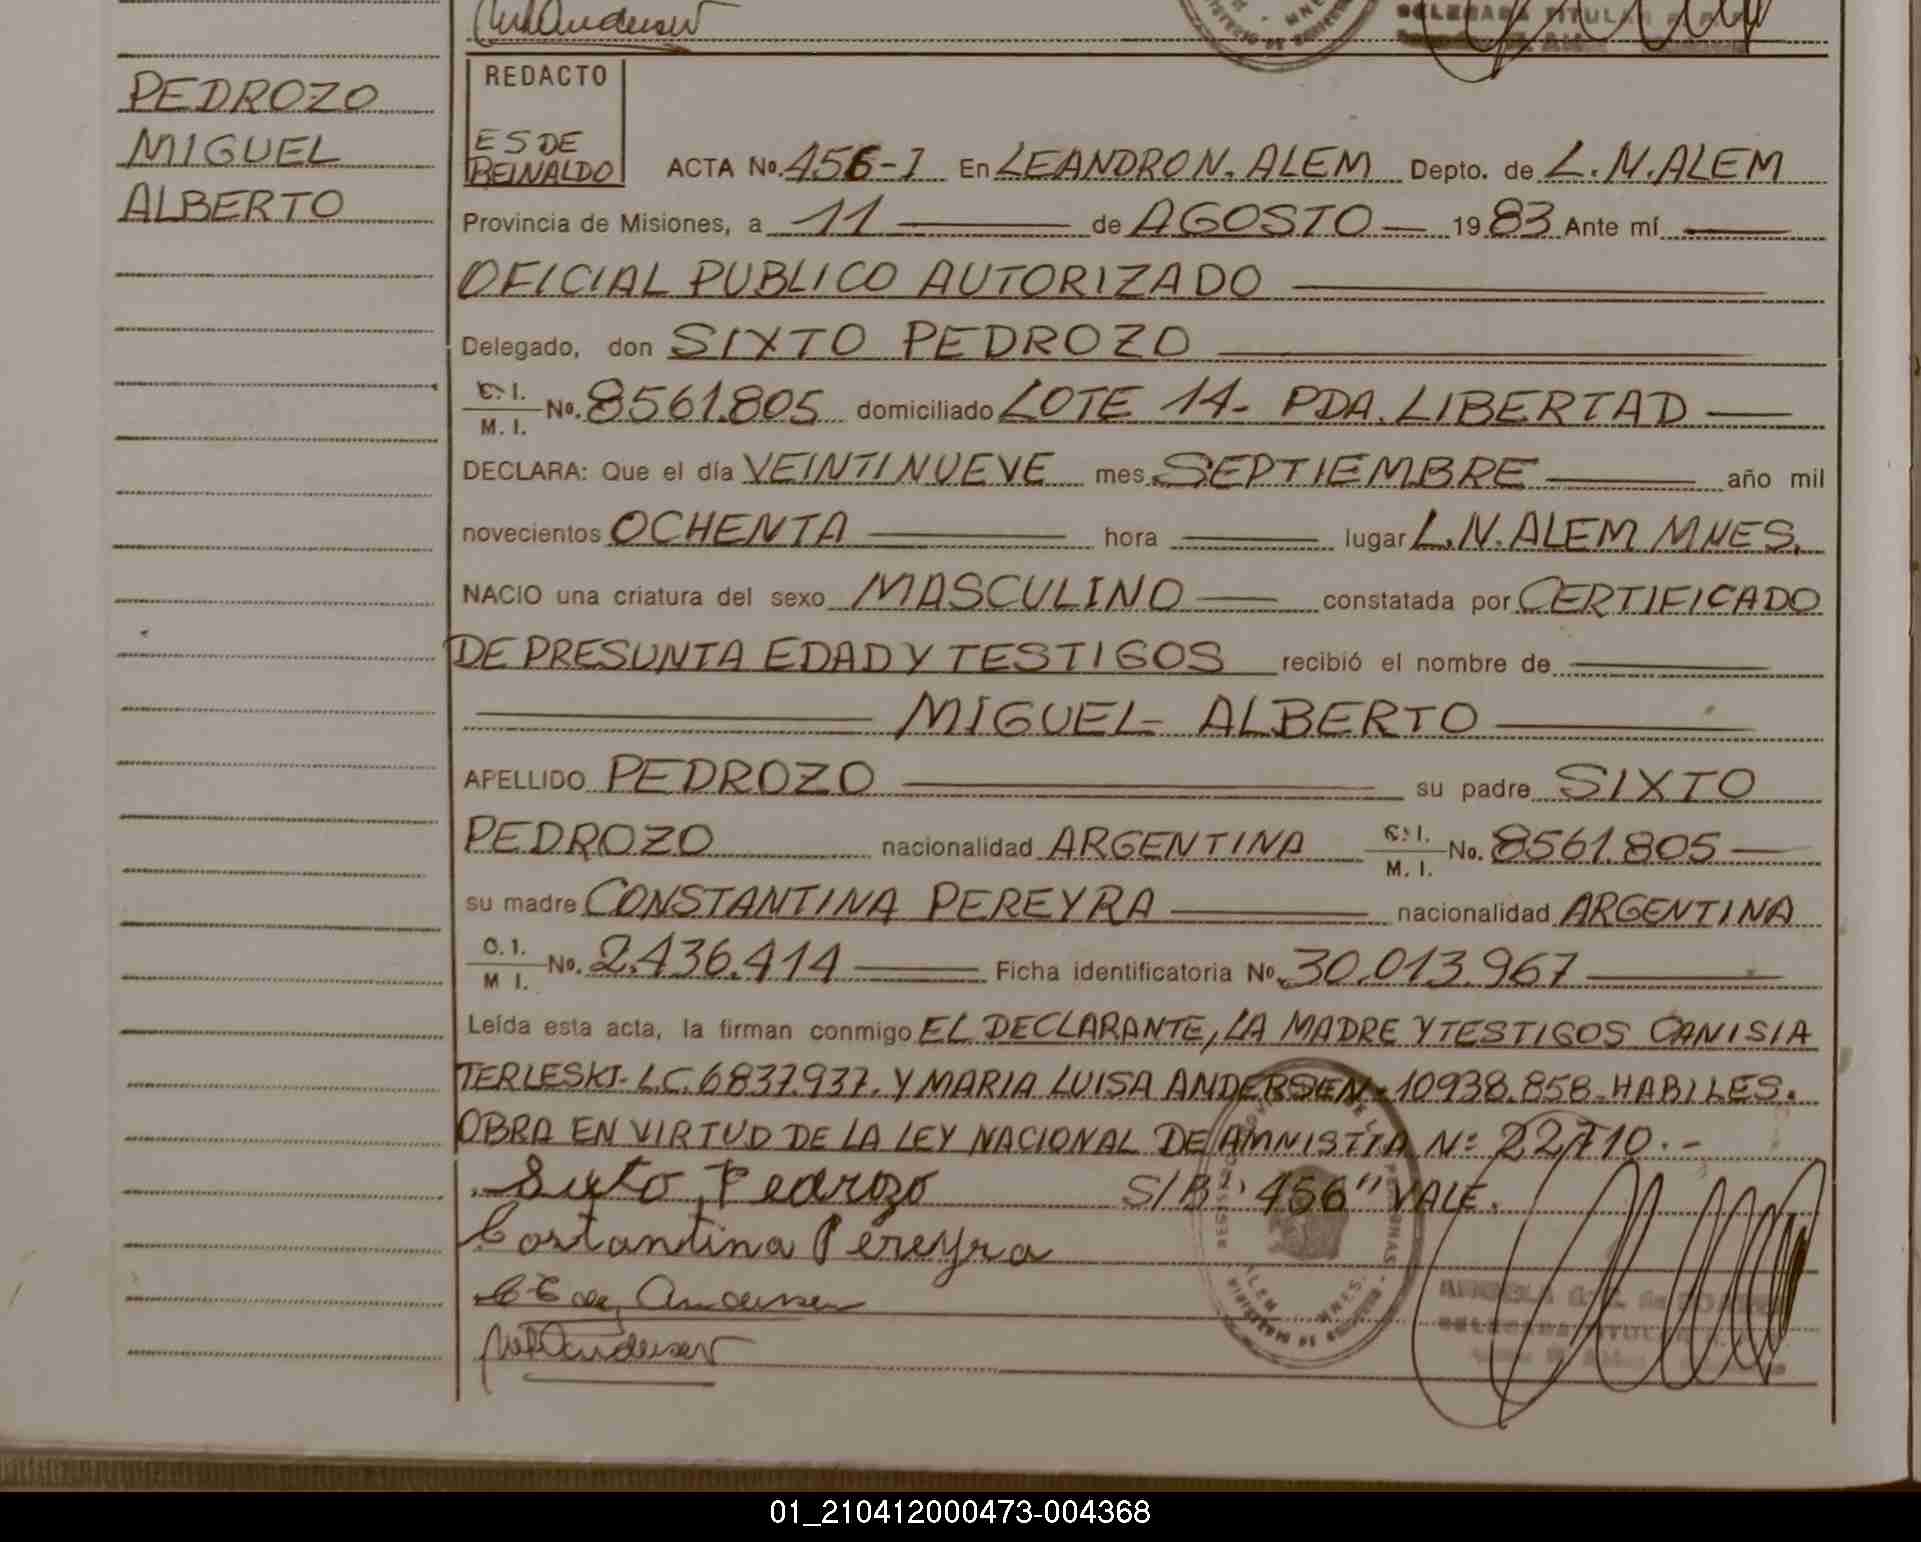 PEDROZO
MIGUEL
ALBERTO
REDACTO
ES DE
REINALDO
ACTA No. 456-I En LEANDRO N. ALEM Depto. de L.N.ALEM
Provincia de Misiones, a 11 de AGOSTO 1983 Ante mí
OFICIAL PUBLICO AUTORIZADO
Delegado, don SIXTO PEDROZO
C. I. / M. I. No. 8561.805 domiciliado LOTE 14- PDA. LIBERTAD
DECLARA: Que el día VEINTINUEVE mes SEPTIEMBRE año mil
novecientos OCHENTA hora lugar L.N.ALEM MNES.
NACIO una criatura del sexo MASCULINO constatada por CERTIFICADO
DE PRESUNTA EDAD Y TESTIGOS recibió el nombre de
MIGUEL ALBERTO
APELLIDO PEDROZO su padre SIXTO
PEDROZO nacionalidad ARGENTINA C. I. / M. I. No. 8561.805
su madre CONSTANTINA PEREYRA nacionalidad ARGENTINA
C. I. / M I. No. 2.436.414 Ficha identificatoria No. 30.013.967
Leída esta acta, la firman conmigo EL DECLARANTE, LA MADRE Y TESTIGOS CANISIA
TERLESKI- L.C. 6837.937. Y MARIA LUISA ANDERSEN- 10938.858- HABILES.
OBRA EN VIRTUD DE LA LEY NACIONAL DE AMNISTIA Nº 22710.-
Sixto Pedrozo S/B "456" VALE.
Costantina Pereyra
de Andersen
Andersen
01_210412000473-004368